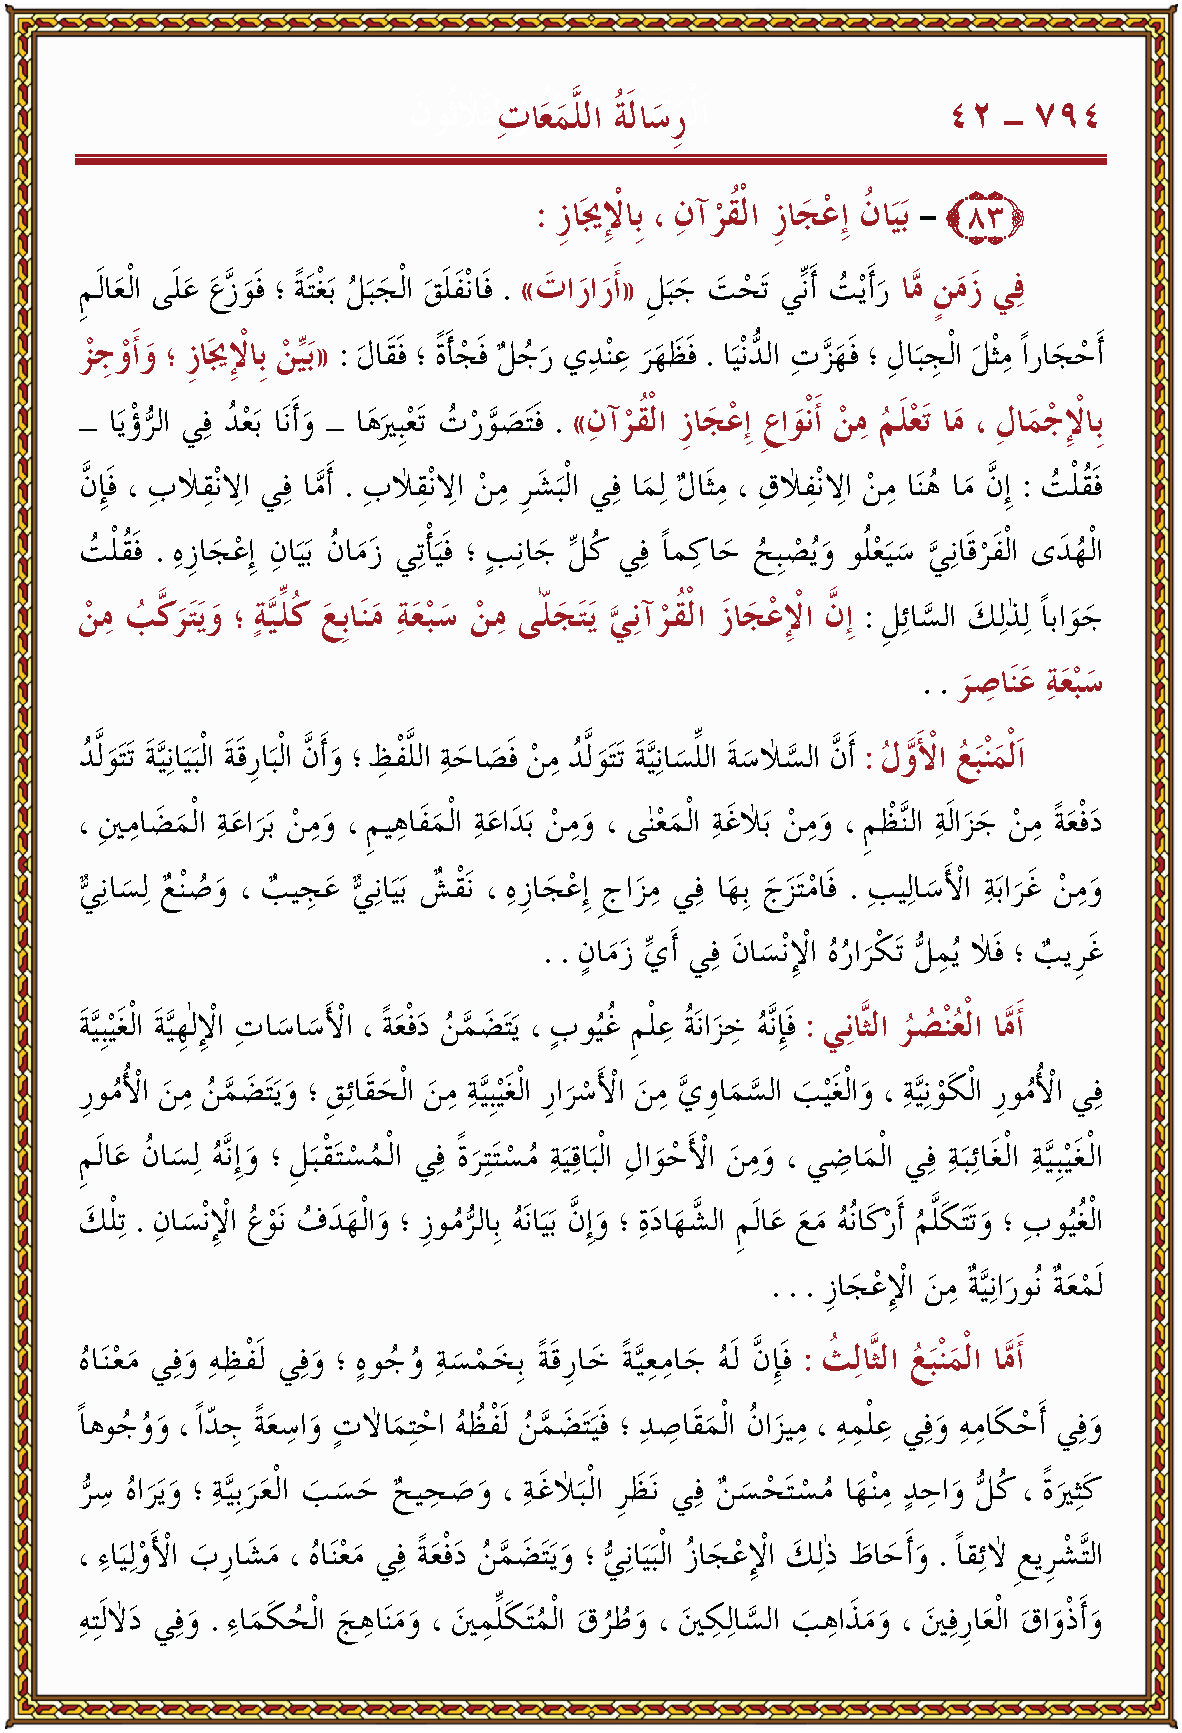 ٧٩٤ – ٤٢ رِسَالَةُ اللَّمَعَاتِ
﴿٨٣﴾ – بَيَانُ إِعْجَازِ الْقُرْآنِ ، بِالْإِيجَازِ :
فِي زَمَنٍ مَّا رَأَيْتُ أَنِّي تَحْتَ جَبَلِ «أَرَارَاتَ» . فَانْفَلَقَ الْجَبَلُ بَغْتَةً ؛ فَوَزَّعَ عَلَى الْعَالَمِ
أَحْجَاراً مِثْلَ الْجِبَالِ ؛ فَهَزَّتِ الدُّنْيَا . فَظَهَرَ عِنْدِي رَجُلٌ فَجْأَةً ؛ فَقَالَ : «بَيِّنْ بِالْإِيجَازِ ؛ وَأَوْجِزْ
بِالْإِجْمَالِ ، مَا تَعْلَمُ مِنْ أَنْوَاعِ إِعْجَازِ الْقُرْآنِ» . فَتَصَوَّرْتُ تَعْبِيرَهَا – وَأَنَا بَعْدُ فِي الرُّؤْيَا –
فَقُلْتُ : إِنَّ مَا هُنَا مِنْ الِانْفِلَاقِ ، مِثَالٌ لِمَا فِي الْبَشَرِ مِنْ الِانْقِلَابِ . أَمَّا فِي الِانْقِلَابِ ، فَإِنَّ
الْهُدَى الْفَرْقَانِيَّ سَيَعْلُو وَيُصْبِحُ حَاكِماً فِي كُلِّ جَانِبٍ ؛ فَيَأْتِي زَمَانُ بَيَانِ إِعْجَازِهِ . فَقُلْتُ
جَوَاباً لِذٰلِكَ السَّائِلِ : إِنَّ الْإِعْجَازَ الْقُرْآنِيَّ يَتَجَلَّى مِنْ سَبْعَةِ مَنَابِعَ كُلِّيَّةٍ ؛ وَيَتَرَكَّبُ مِنْ
سَبْعَةِ عَنَاصِرَ . .
اَلْمَنْبَعُ الْأَوَّلُ : أَنَّ السَّلَاسَةَ اللِّسَانِيَّةَ تَتَوَلَّدُ مِنْ فَصَاحَةِ اللَّفْظِ ؛ وَأَنَّ الْبَارِقَةَ الْبَيَانِيَّةَ تَتَوَلَّدُ
دَفْعَةً مِنْ جَزَالَةِ النَّظْمِ ، وَمِنْ بَلَاغَةِ الْمَعْنٰى ، وَمِنْ بَدَاعَةِ الْمَفَاهِيمِ ، وَمِنْ بَرَاعَةِ الْمَضَامِينِ ،
وَمِنْ غَرَابَةِ الْأَسَالِيبِ . فَامْتَزَجَ بِهَا فِي مِزَاجِ إِعْجَازِهِ ، نَقْشٌ بَيَانِيٌّ عَجِيبٌ ، وَصُنْعٌ لِسَانِيٌّ
غَرِيبٌ ؛ فَلَا يُمِلُّ تَكْرَارُهُ الْإِنْسَانَ فِي أَيِّ زَمَانٍ . .
أَمَّا الْعُنْصُرُ الثَّانِي : فَإِنَّهُ خِزَانَةُ عِلْمِ غُيُوبٍ ، يَتَضَمَّنُ دَفْعَةً ، الْأَسَاسَاتِ الْإِلٰهِيَّةَ الْغَيْبِيَّةَ
فِي الْأُمُورِ الْكَوْنِيَّةِ ، وَالْغَيْبَ السَّمَاوِيَّ مِنَ الْأَسْرَارِ الْغَيْبِيَّةِ مِنَ الْحَقَائِقِ ؛ وَيَتَضَمَّنُ مِنَ الْأُمُورِ
الْغَيْبِيَّةِ الْغَائِبَةِ فِي الْمَاضِي ، وَمِنَ الْأَحْوَالِ الْبَاقِيَةِ مُسْتَتِرَةً فِي الْمُسْتَقْبَلِ ؛ وَإِنَّهُ لِسَانُ عَالَمِ
الْغُيُوبِ ؛ وَتَتَكَلَّمُ أَرْكَانُهُ مَعَ عَالَمِ الشَّهَادَةِ ؛ وَإِنَّ بَيَانَهُ بِالرُّمُوزِ ؛ وَالْهَدَفُ نَوْعُ الْإِنْسَانِ . تِلْكَ
لَمْعَةٌ نُورَانِيَّةٌ مِنَ الْإِعْجَازِ . . .
أَمَّا الْمَنْبَعُ الثَّالِثُ : فَإِنَّ لَهُ جَامِعِيَّةً خَارِقَةً بِخَمْسَةِ وُجُوهٍ ؛ وَفِي لَفْظِهِ وَفِي مَعْنَاهُ
وَفِي أَحْكَامِهِ وَفِي عِلْمِهِ ، مِيزَانُ الْمَقَاصِدِ ؛ فَيَتَضَمَّنُ لَفْظُهُ احْتِمَالَاتٍ وَاسِعَةً جِدّاً ، وَوُجُوهاً
كَثِيرَةً ، كُلُّ وَاحِدٍ مِنْهَا مُسْتَحْسَنٌ فِي نَظَرِ الْبَلَاغَةِ ، وَصَحِيحٌ حَسَبَ الْعَرَبِيَّةِ ؛ وَيَرَاهُ سِرُّ
التَّشْرِيعِ لَائِقاً . وَأَحَاطَ ذٰلِكَ الْإِعْجَازُ الْبَيَانِيُّ ؛ وَيَتَضَمَّنُ دَفْعَةً فِي مَعْنَاهُ ، مَشَارِبَ الْأَوْلِيَاءِ ،
وَأَذْوَاقَ الْعَارِفِينَ ، وَمَذَاهِبَ السَّالِكِينَ ، وَطُرُقَ الْمُتَكَلِّمِينَ ، وَمَنَاهِجَ الْحُكَمَاءِ . وَفِي دَلَالَتِهِ